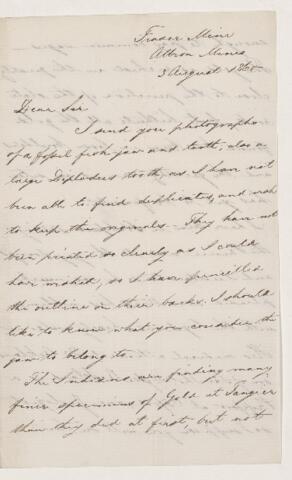 Fraser Mine
Albion Mines
3 August 186
Dear Sir
I send you photographs
of a fossil fish jaw and tooth, also a
large Diplodus tooth, as I have not
been able to find duplicates, and wish
to keep the originals. They have not
been printed so clearly as I could
have wished, so I have pencilled
the outline on their backs. I should
like to know what you consider the
jaw to belong to.
The Indians are finding many
finer specimens of Gold at Tangier
than they did at first, but not